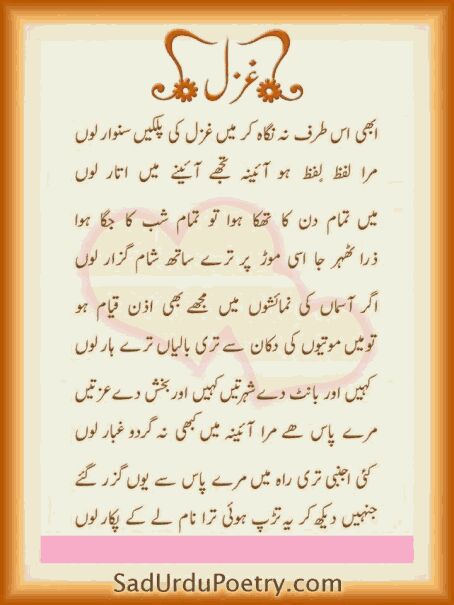 غزل
ابھی اس طرف نہ نگاہ کر میں غزل کی پلکیں سنوار لوں
مرا لفظ لفظ ہو آئینہ تجھے آئینے میں اتار لوں
میں تمام دن کا تھکا ہوا تو تمام شب کا جگا ہوا
ذرا ٹھہر جا اسی موڑ پر ترے ساتھ شام گزار لوں
اگر آسماں کی نمائشوں میں مجھے بھی اذن قیام ہو
تو میں موتیوں کی دکان سے تری بالیاں ترے ہار لوں
کہیں اور بانٹ دے شہرتیں کہیں اور بخش دے عزتیں
مرے پاس ھے مرا آئینہ میں کبھی نہ گرد و غبار لوں
کئی اجنبی تری راہ میں مرے پاس سے یوں گزر گئے
جنہیں دیکھ کر یہ تڑپ ہوئی ترا نام لے کے پکار لوں
SadUrduPoetry.com